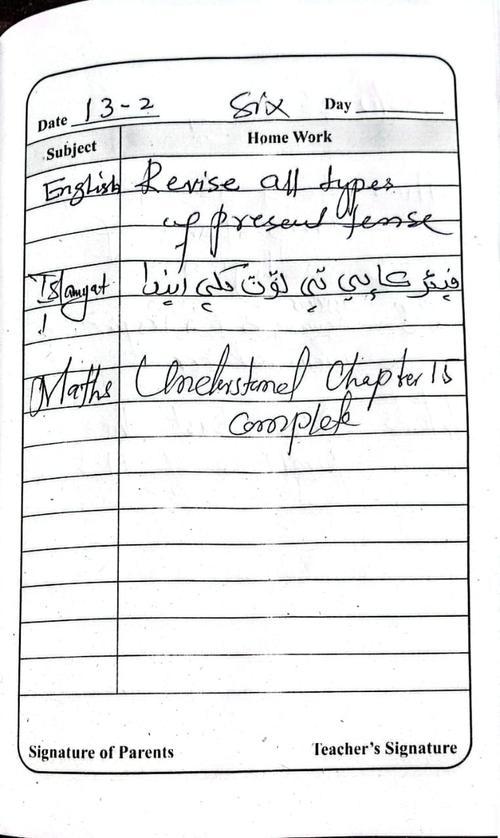 Date 13-2 Six Day
Subject Home Work
English Revise all types
of present tense
Islamyat فيئر ڪاپي تي نوٽ لکي ايندا
Maths Understand Chapter 15
complete
Signature of Parents Teacher's Signature